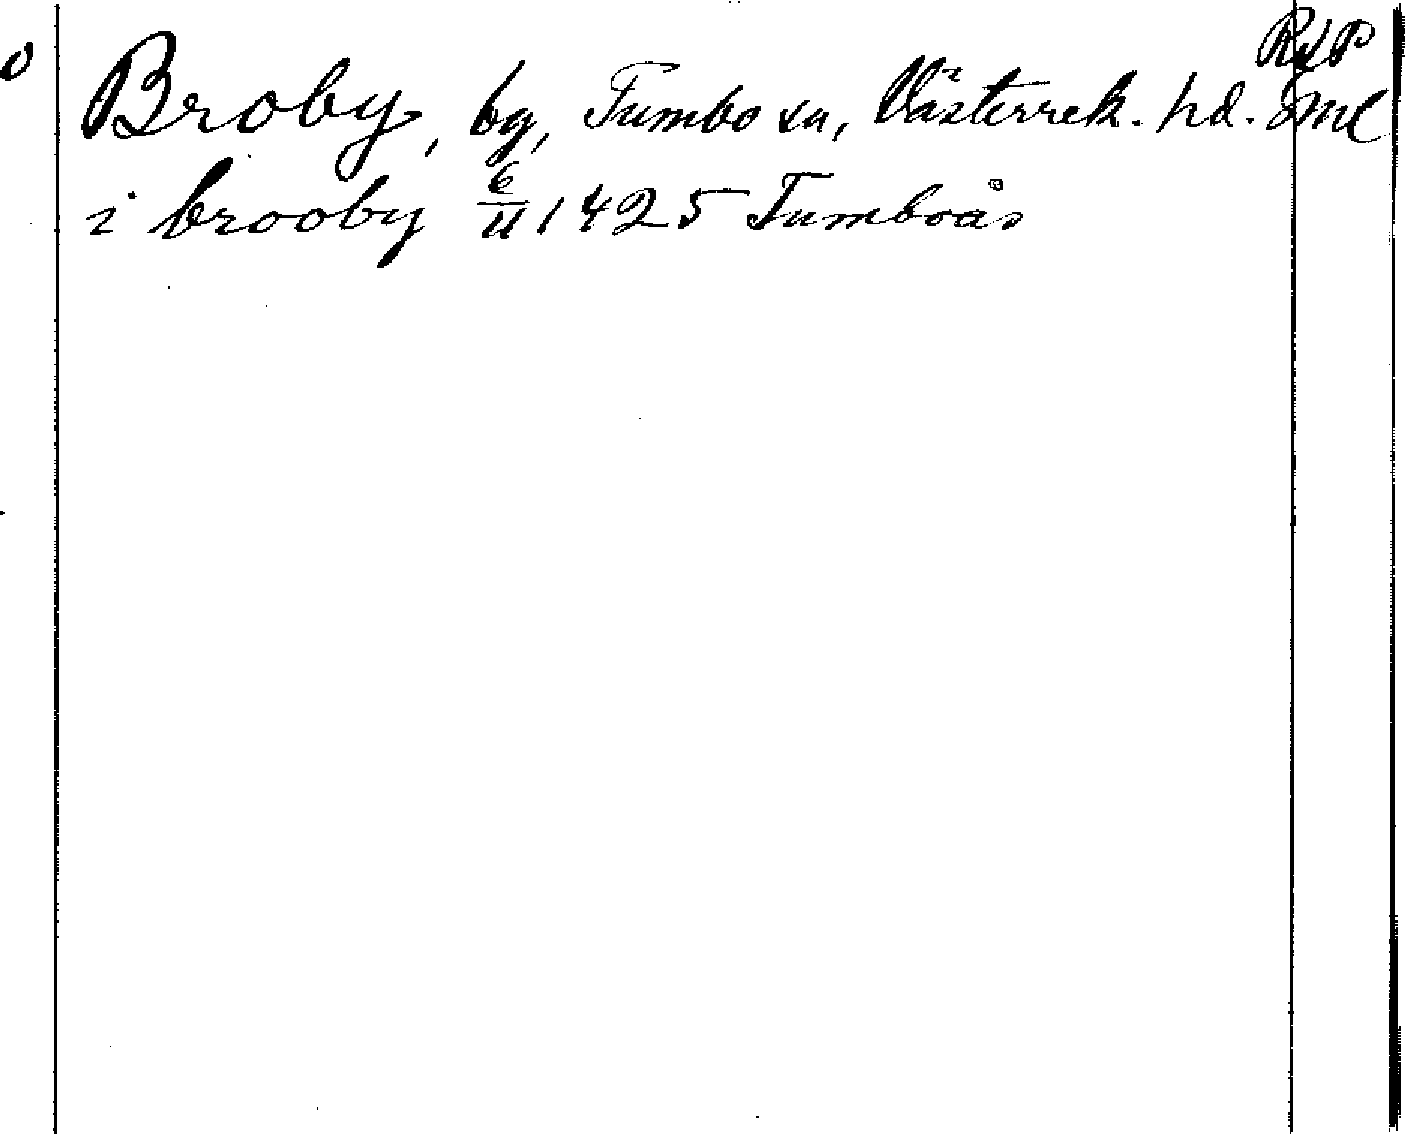 RAP
Broby, bg, Tumbo sn, Västerrek. hd. Sml
i brooby 6/11 1425 Tumboås